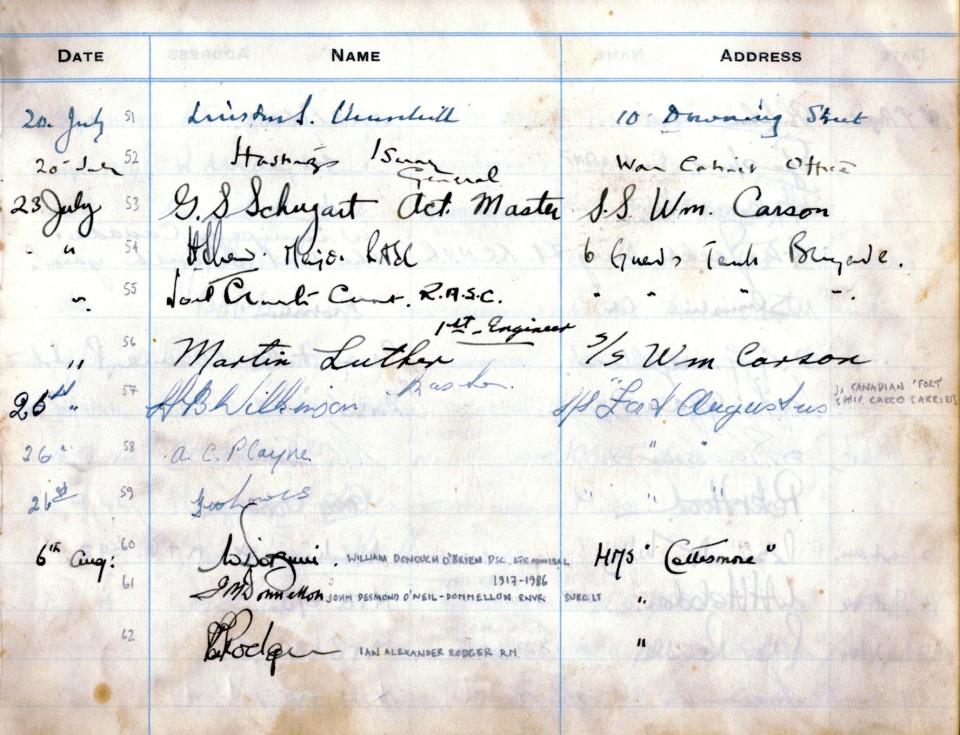 DATE NAME ADDRESS
20. July 51 Winston S. Churchill 10 Downing Street
20 July 52 Hastings Ismay General War Cabinet Office
23 July 53 G. S Schugart Act. Master S.S. Wm. Carson
" 54 Major 6 Guards Tank Brigade.
" 55 R.A.S.C. " " ".
1st. Engineer
" 56 Martin Luther S/S Wm Carson
26th " 57 H B Wilkinson Master S/S "Fort Augustus" CANADIAN 'FORT' SHIP, CARGO CARRIER
26" 58 A. C. P Cayne " "
26th 59 " " "
6th Aug: 60 WILLIAM DONOUCH O'BRIEN DSC. LT. ADMIRAL HMS "Cattistock"
1917-1986
61 J M Donnellon JOHN DESMOND O'NEIL-DONNELLON RNVR. SURG. LT "
62 Rodger IAN ALEXANDER RODGER R.N. "